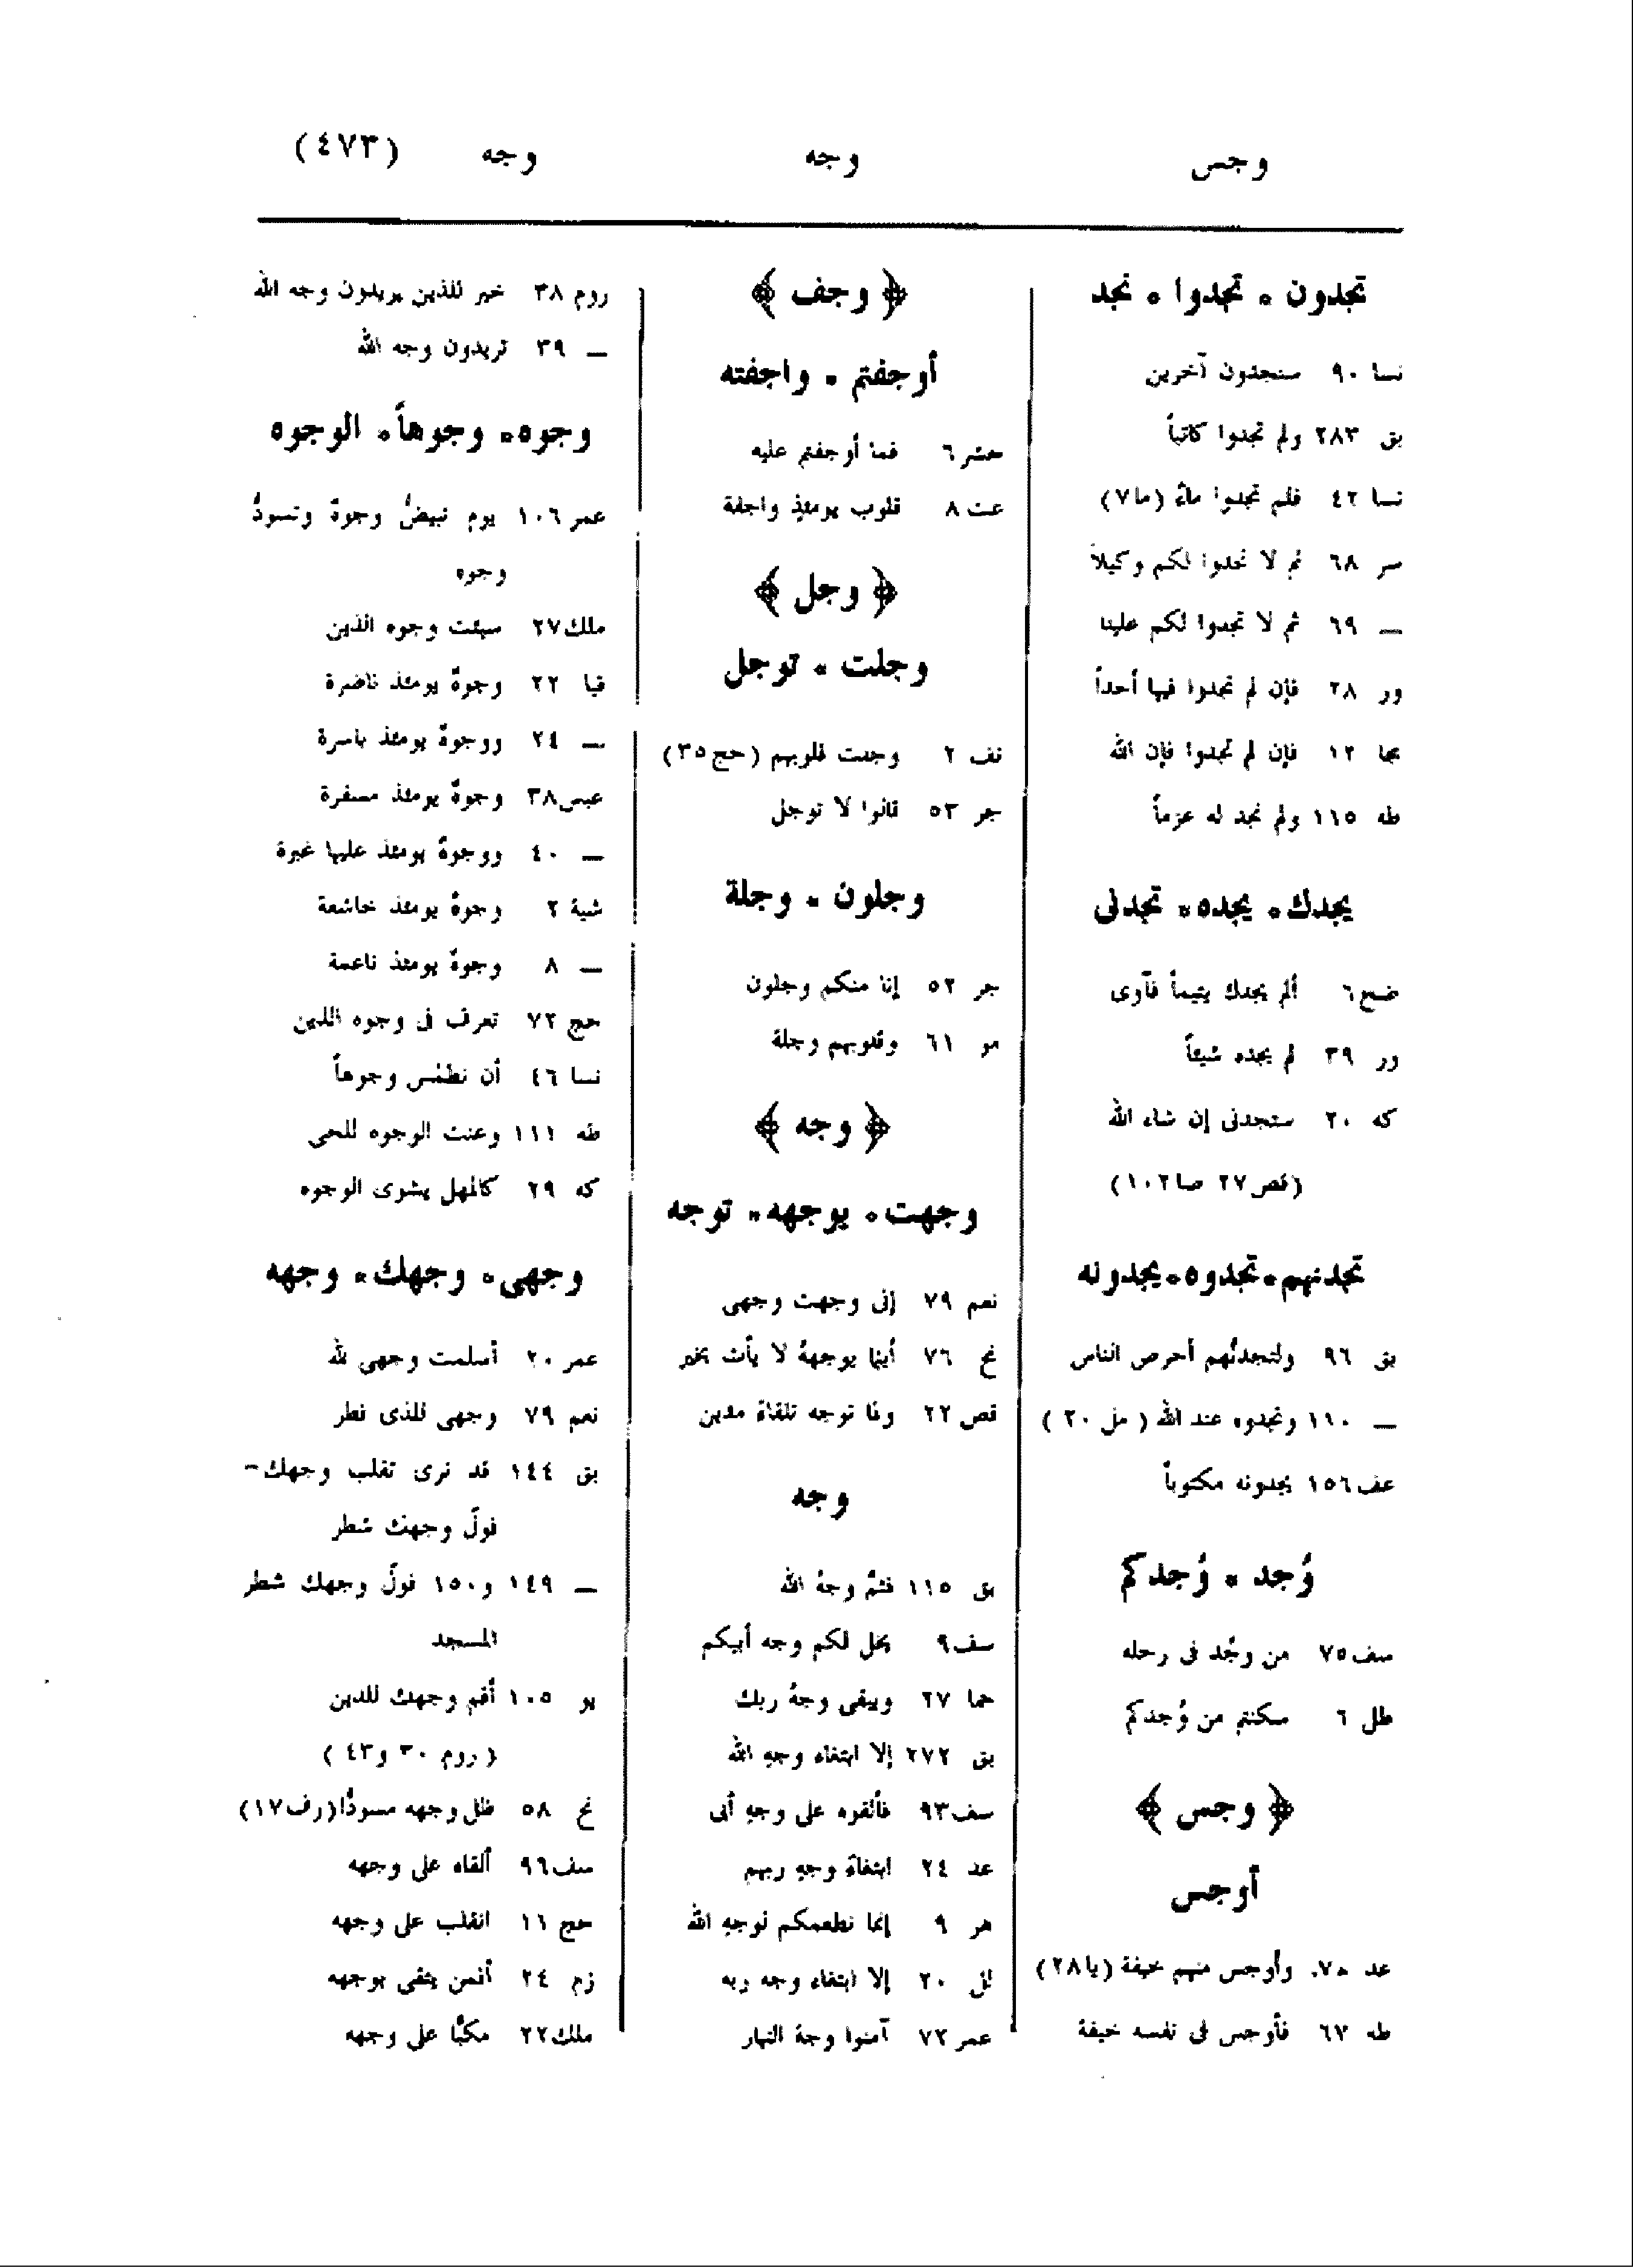 وجس
وجه
وجه
(٤٧٣)
تجدون * تجدوا * نجد
نسا ٩٠ ستجدون آخرين
بق ٢٨٣ ولم تجدوا كاتباً
نسا ٤٢ فلم تجدوا ماءً (ما٧)
سر ٦٨ ثم لا تجدوا لكم وكيلا
ــ ٦٩ ثم لا تجدوا لكم علينا
ور ٢٨ فإن لم تجدوا فيها أحداً
مجا ١٢ فإن لم تجدوا فإن الله
طه ١١٥ ولم نجد له عزماً
يجدك * يجده * تجدنى
ضح ٦ ألم يجدك يتيماً فآوى
ور ٣٩ لم يجده شيئاً
كه ٢٠ ستجدنى إن شاء الله
(قص ٢٧ صا ١٠٢)
تجدنهم * تجدوه * يجدونه
بق ٩٦ ولتجدنهم أحرص الناس
ــ ١١٠ وتجدوه عند الله ( مل ٢٠ )
عف ١٥٦ يجدونه مكتوباً
وُجد * وُجدكم
سف ٧٥ من وجُد فى رحله
طل ٦ سكنتم من وُجدكم
﴿ وجس ﴾
أوجس
عد ٧٠ وأوجس منهم خيفة (يا ٢٨)
طه ٦٧ فأوجس فى نفسه خيفة
﴿ وجف ﴾
أوجفتم * واجفته
حشر ٦ فما أوجفتم عليه
عت ٨ قلوب يومئذٍ واجفة
﴿ وجل ﴾
وجلت * توجل
نف ٢ وجلت قلوبهم (حج ٣٥)
جر ٥٣ قالوا لا توجل
وجلون * وجلة
جر ٥٢ إنا منكم وجلون
مو ٦١ وقلوبهم وجلة
﴿ وجه ﴾
وجهت * يوجهه * توجه
نعم ٧٩ إنى وجهت وجهى
نح ٧٦ أينما يوجههُ لا يأت بخير
قص ٢٢ ولما توجه تلقاءَ مدين
وجه
بق ١١٥ فثمَّ وجهُ الله
سف ٩ يخل لكم وجه أبيكم
حما ٢٧ ويبقى وجهُ ربك
بق ٢٧٢ إلا ابتغاء وجهِ الله
سف ٩٣ فألقوه على وجهِ أبى
عد ٢٤ ابتغاءَ وجهِ ربهم
هر ٩ إنما نطعمكم لوجهِ الله
لل ٢٠ إلا ابتغاء وجه ربه
عمر ٧٢ آمنوا وجهَ النهار
روم ٣٨ خير للذين يريدون وجه الله
ــ ٣٩ تريدون وجه الله
وجوه * وجوهاً * الوجوه
عمر ١٠٦ يوم تبيضُّ وجوهٌ وتسودُّ
وجوه
ملك ٢٧ سيئت وجوه الذين
قيا ٢٢ وجوهٌ يومئذ ناضرة
ــ ٢٤ ووجوهٌ يومئذ باسرة
عبس ٣٨ وجوهٌ يومئذ مسفرة
ــ ٤٠ ووجوهٌ يومئذ عليها غبرة
شية ٢ وجوهٌ يومئذ خاشعة
ــ ٨ وجوهٌ يومئذ ناعمة
حج ٧٢ تعرف فى وجوه الذين
نسا ٤٦ أن نطمس وجوهاً
طه ١١١ وعنت الوجوه للحى
كه ٢٩ كالمهل يشوى الوجوه
وجهى * وجهك * وجهه
عمر ٢٠ أسلمت وجهى لله
نعم ٧٩ وجهى للذى فطر
بق ١٤٤ قد نرى تقلب وجهك -
فولِّ وجهك شطر
ــ ١٤٩ و١٥٠ فولِّ وجهك شطر
المسجد
يو ١٠٥ أقم وجهك للدين
( روم ٣٠ و٤٣ )
نح ٥٨ ظل وجهه مسودًّا (رف ١٧)
سف ٩٦ ألقاه على وجهه
حج ١١ انقلب على وجهه
زم ٢٤ أفمن يتقى بوجهه
ملك ٢٢ مكبًّا على وجهه